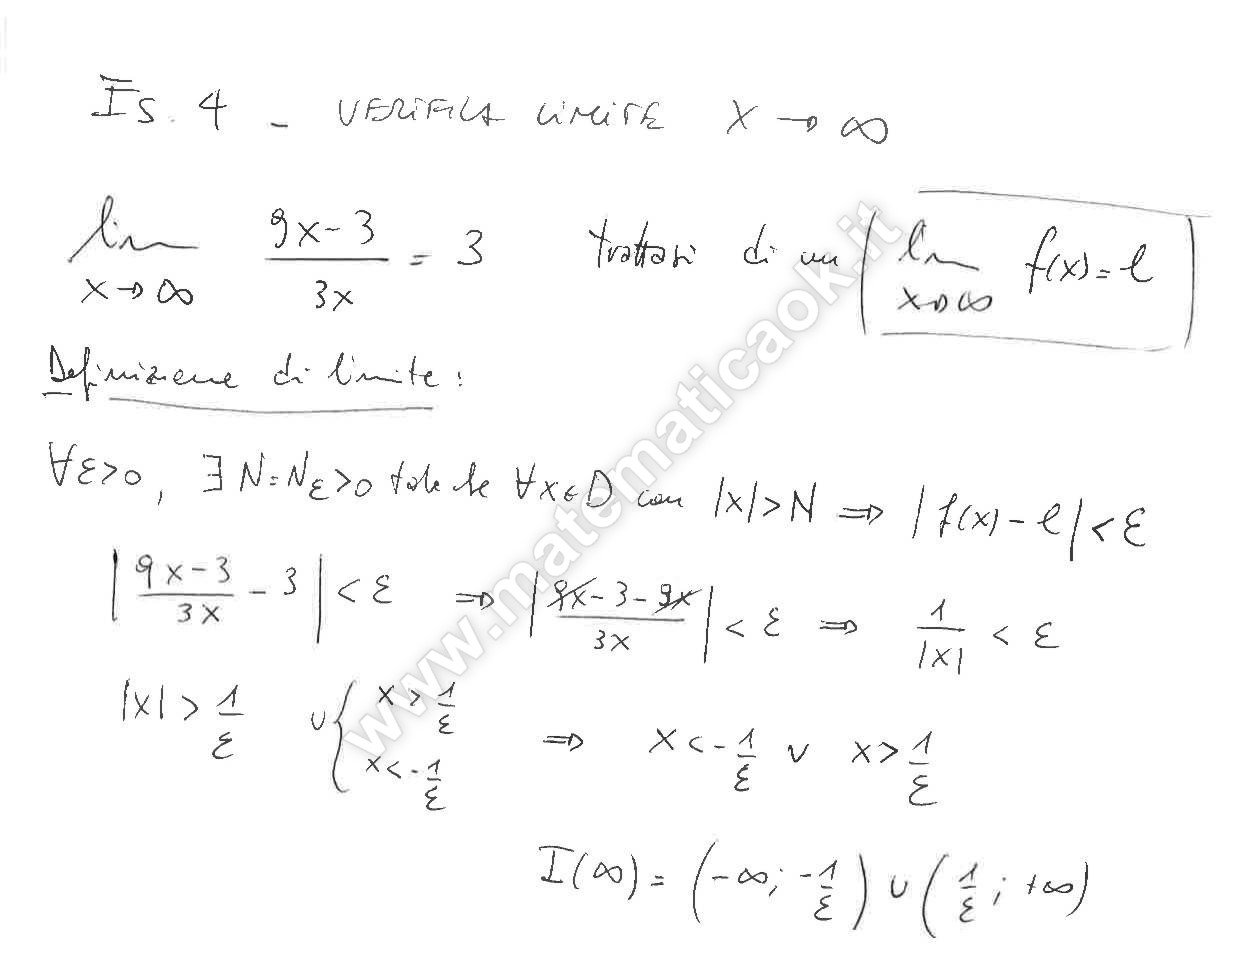 Es. 4 - VERIFICA LIMITE X → ∞
lim x→∞ (9x-3)/(3x) = 3 trattasi di un lim x→∞ f(x) = l
Definizione di limite:
∀ε>0, ∃ N=Nε>0 tale che ∀x∈D con |x|>N ⇒ |f(x)-l|<ε
|(9x-3)/(3x) - 3| < ε ⇒ |(9x-3-9x)/(3x)| < ε ⇒ 1/|x| < ε
|x| > 1/ε ∪ { x > 1/ε x < -1/ε ⇒ x < -1/ε ∨ x > 1/ε
I(∞) = (-∞; -1/ε) ∪ (1/ε; +∞)
www.matematicaok.it